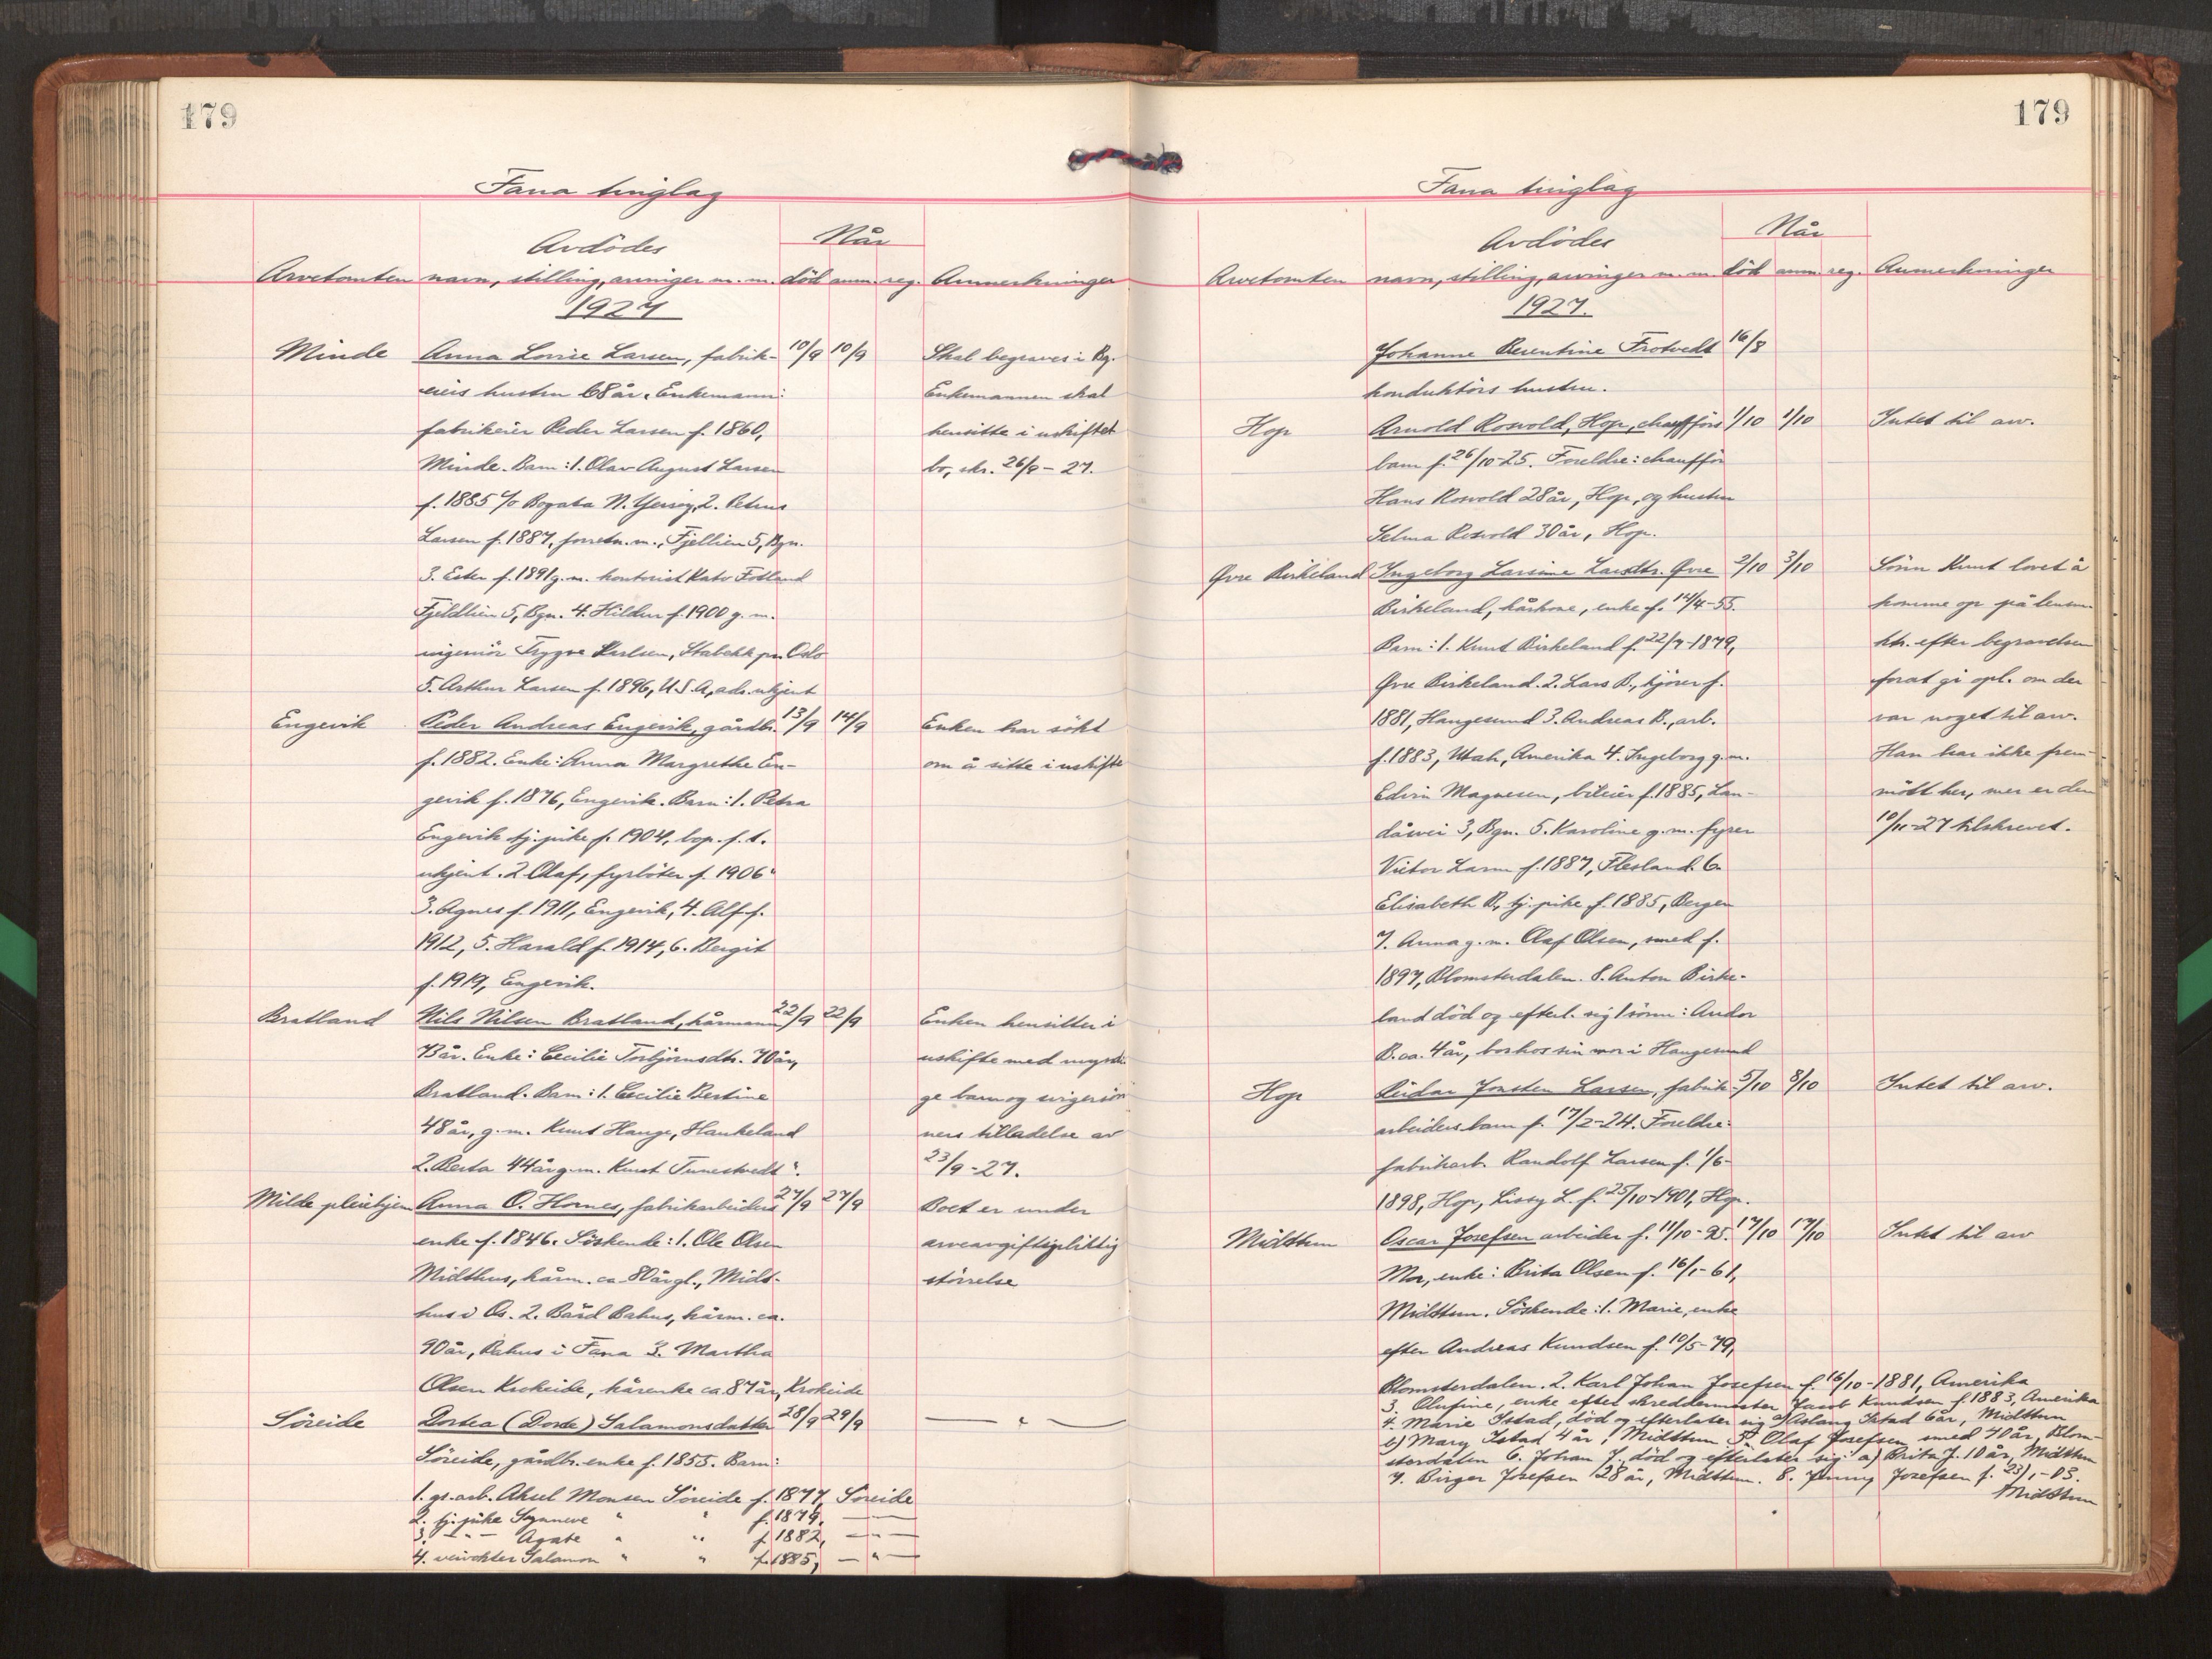 179
Fana tinglag
Når
Avdödes
Arvetomten navn, stilling, arvinger m.m. död anm. reg. Anmerkninger
1927
Minde Anna Lovise Larsen, fabrik- 10/9 10/9 Skal begraves i Bg.
eiers hustru 68 år. Enkemann: Enkemannen skal
fabrikeier Peder Larsen f. 1860, hensitte i uskiftet
Minde. Barn: 1. Olav August Larsen bo, skr. 26/9-27.
f. 1885 c/o Bogata N. 2. Petrus
Larsen f. 1887, forretn.m., Fjellien 5, Bgn.
3. Ester f. 1891 g.m. kontorist Kato Fotland
Fjeldlien 5, Bgn. 4. Hildur f. 1900 g.m.
ingeniör Trygve Karlsen, Stabekk pr. Oslo
5. Arthur Larsen f. 1896, U.S.A, ads. ukjent
Engevik Peder Andreas Engevik, gårdbr. 13/9 14/9 Enken har sökt
f. 1882. Enke: Anna Margrethe En- om å sitte i uskifte
gevik f. 1876, Engevik. Barn: 1. Petra
Engevik tj.pike f. 1904, bop. f.t.
ukjent. 2. Olaf, fyrböter f. 1906 "
3. Agnes f. 1911, Engevik, 4. Alf f.
1912, 5. Harald f. 1914, 6. Bergit
f. 1919, Engevik.
Bratland Nils Nilsen Bratland, kårmann 22/9 22/9 Enken hensitter i
73 år. Enke: Cecilie Torbjörnsdtr. 70 år, uskifte med myndi-
Bratland. Barn: 1. Cecilie Bertine ge barn og svigersön-
48 år, g.m. Knut Hauge, Haukeland ners tilladelse av
2. Berta 44 år g.m. Knut Tunestvedt ". 23/9-27.
Milde pleiehjem Anna O. Hornes, fabrikarbeiders 27/9 27/9 Boet er under
enke f. 1846. Söskende: 1. Ole Olsen arveavgiftspliktig
Midthus, kårm. ca 80 år gl., Midt- störrelse
hus i Os. 2. Bård Bahus, kårm. ca.
90 år, Bahus i Fana 3. Martha
Olsen Krokeide, kårenke ca 87 år, Krokeide
Söreide Dortea (Dorte) Salamonsdatter 28/9 29/9 — " —
Söreide, gårdbr. enke f. 1855. Barn:
1. gs.arb. Aksel Monsen Söreide f. 1877, Söreide
2. tj.pike Synneve " " f. 1879, — " —
3. — " — Agate " " f. 1882, — " —
4. veivokter Salamon " " f. 1885, — " —
179
Fana tinglag
Når
Avdödes
Arvetomten navn, stilling, arvinger m.m. död anm. reg. Anmerkninger
1927.
Johanne Berentine Trotvedt 16/8
konduktörs hustru.
Hop Arnold Rosvold, Hop, chaufförs 1/10 1/10 Intet til arv.
barn f. 26/10-25. Foreldre: chaufför
Hans Rosvold 28 år, Hop, og hustru
Selma Rosvold 30 år, Hop.
Øvre Birkeland Ingeborg Larsine Larsdtr. Øvre 2/10 3/10 Sönn Knut lovet å
Birkeland, kårkone, enke f. 14/4-55. komme op på lensm.
Barn: 1. Knut Birkeland f. 22/7-1879, ktr. efter begravelsen
Øvre Birkeland. 2. Lars B., kjörer f. forat gi opl. om der
1881, Haugesund 3. Andreas B., arb. var noget til arv.
f. 1883, Utah, Amerika 4. Ingeborg g.m. Han har ikke frem-
Edvin Magnesen, bileier f. 1885, Lan- mött her, men er den
dåsvei 3, Bgn. 5. Karoline g.m. fyrer 10/11-27 tilskrevet.
Victor Larsen f. 1887, Flesland. 6.
Elisabeth B., tj.pike f. 1885, Bergen
7. Anna g.m. Olaf Olsen, smed f.
1897, Blomsterdalen. 8. Anton Birke-
land död og efterl. sig 1 sönn: Andor
B. ca. 4 år, bor hos sin mor i Haugesund
Hop Reidar Jonsten Larsen, fabrik- 5/10 8/10 Intet til arv.
arbeiders barn f. 17/2-24. Foreldre:
fabrikarb. Randolf Larsen f. 1/6-
1898, Hop, Lissy L. f. 25/10-1901, Hop.
Midttun Oscar Josefsen arbeider f. 11/10-95. 17/10 17/10 Intet til arv
Mor, enke: Brita Olsen f. 16/1-61,
Midttun. Söskende: 1. Marie, enke
efter Andreas Knudsen f. 10/5-79,
Blomsterdalen. 2. Karl Johan Josefsen f. 16/10-1881, Amerika
3. Olufine, enke efter skreddermester Jacob Knudsen f. 1883, Amerika
4. Marie Istad, död og efterlater sig a) Aslaug Istad 6 år, Midttun
b) Mary Istad 4 år, Midttun 5. Olaf Josefsen smed 40 år, Blom-
sterdalen 6. Johan J., död og efterlater sig: a) Brita J. 10 år, Midttun
7. Birger Josefsen 28 år, Midttun. 8. Jenny Josefsen f. 23/1-03.
Midttun